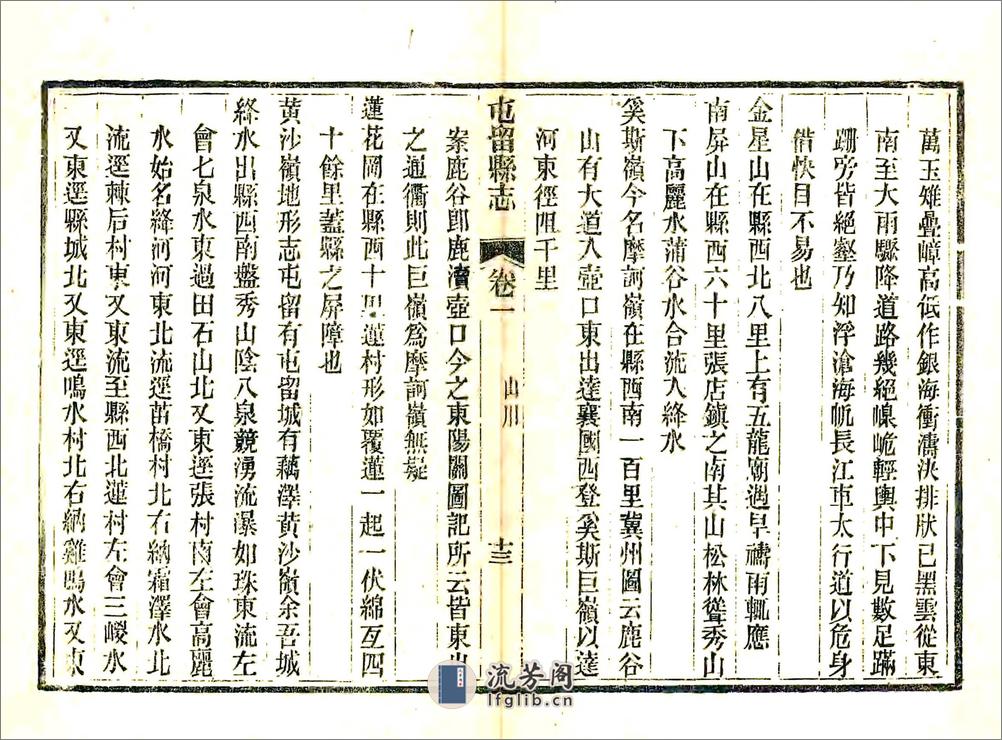 萬玉雉疊嶂高低作銀海衝濤決排狀已黑雲從東
南至大雨驟降道路幾絕嵲峗輕輿中下見數足蹣
跚旁皆絕壑乃知浮滄海帆長江車太行道以危身
借快目不易也
金星山在縣西北八里上有五龍廟遇旱禱雨輒應
南屏山在縣西六十里張店鎮之南其山松林聳秀山
下高麗水蒲谷水合流入絳水
奚斯嶺今名摩訶嶺在縣西南一百里冀州圖云鹿谷
山有大道入壺口東出達襄國西登奚斯巨嶺以達
河東徑阻千里
屯留縣志 卷一 山川 十三
案鹿谷卽鹿瀆壺口今之東陽關圖記所云皆東出
之通衢則此巨嶺爲摩訶嶺無疑
蓮花岡在縣西十里蓮村形如覆蓮一起一伏綿亙四
十餘里蓋縣之屏障也
黃沙嶺地形志屯留有屯留城有藕澤黃沙嶺余吾城
絳水出縣西南盤秀山陰八泉競湧流瀑如珠東流左
會七泉水東過田石山北又東逕張村南左會高麗
水始名絳河河東北流逕苗橋村北右納霜澤水北
流逕棘后村東又東流至縣西北蓮村左會三嵕水
又東逕縣城北又東逕鳴水村北右納雞鳴水又東
流芳阁
lfglib.cn